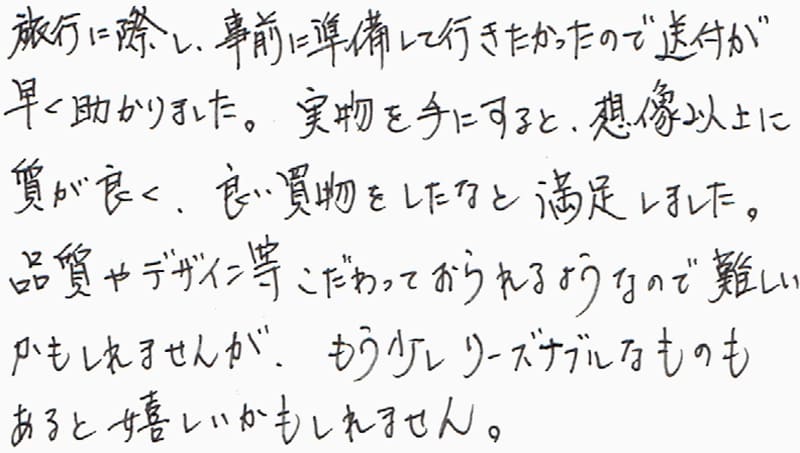 旅行に際し、事前に準備して行きたかったので送付が
早く助かりました。実物を手にすると、想像以上に
質が良く、良い買物をしたなと満足しました。
品質やデザイン等こだわっておられるようなので難しい
かもしれませんが、もう少しリーズナブルなものも
あると嬉しいかもしれません。